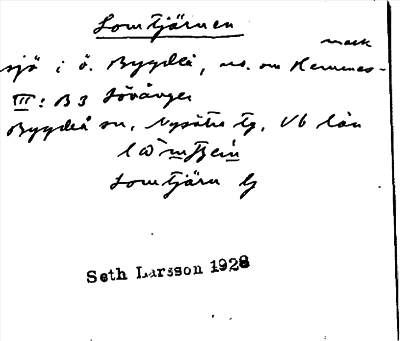 Lomtjärnen
mark
sjö i ö. Bygdeå, no. om Hemmes-
III: B 3 Lövånger
Bygdeå sn, Nysätra tg, Vb län
Lomtjärn
Seth Larsson 1928